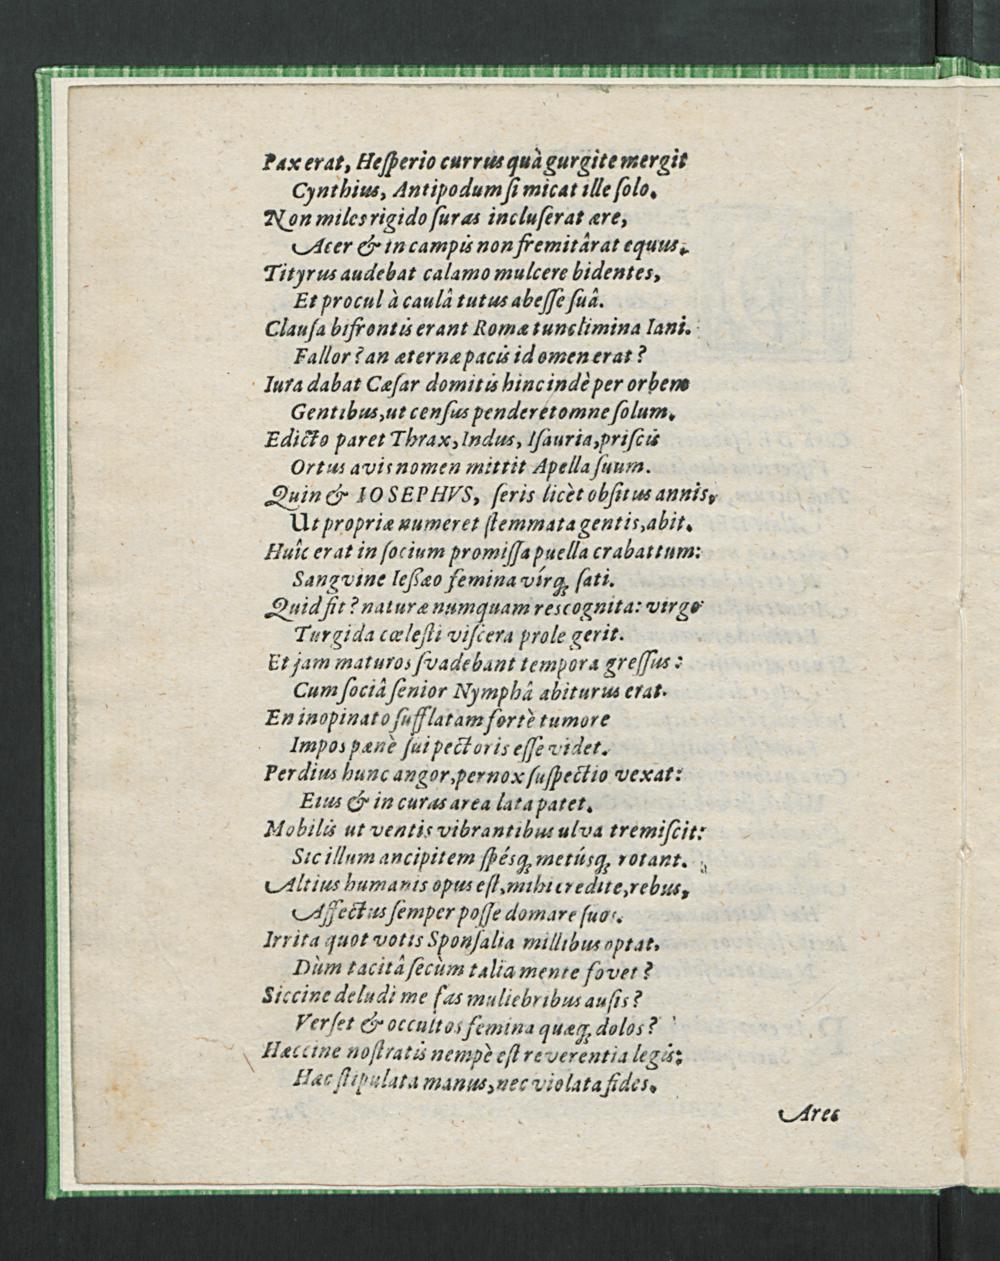 Pax erat, Heſperio currus quà gurgite mergit
Cynthius, Antipodum ſi micat ille ſolo.
Non miles rigido ſuras incluſerat ære,
Acer & in campis non fremitârat equus.
Tityrus audebat calamo mulcere bidentes,
Et procul à caulâ tutus abeſſe ſuâ.
Clauſa bifrontis erant Romæ tunc limina Iani.
Fallor? an æternæ pacis id omen erat?
Iura dabat Cæſar domitis hinc indè per orbem
Gentibus, ut cenſus penderet omne ſolum.
Edicto paret Thrax, Indus, Iſauria, priſcis
Ortus avis nomen mittit Apella ſuum.
Quin & IOSEPHVS, ſeris licèt obſitus annis,
Ut propriæ numeret ſtemmata gentis, abit.
Huîc erat in ſocium promiſſa puella crabattum:
Sangvine Ieſsæo femina vírq; ſati.
Quid fit? naturæ numquam res cognita: virgo
Turgida cœleſti viſcera prole gerit.
Et jam maturos ſvadebant tempora greſſus:
Cum ſociâ ſenior Nymphâ abiturus erat.
En inopinato ſufflatam fortè tumore
Impos pænè ſui pectoris eſſe videt.
Perdius hunc angor, pernox ſuſpectio vexat:
Eius & in curas area lata patet.
Mobilis ut ventis vibrantibus ulva tremiſcit:
Sic illum ancipitem ſpésq; metúsq; rotant.
Altius humanis opus eſt, mihi credite, rebus,
Affectus ſemper poſſe domare ſuos.
Irrita quot votis Sponſalia millibus optat,
Dùm tacitâ ſecùm talia mente fovet?
Siccine deludi me fas muliebribus auſis?
Verſet & occultos femina quæq; dolos?
Hæccine noſtratis nempè eſt reverentia legis:
Hæc ſtipulata manus, nec violata fides.
Ares